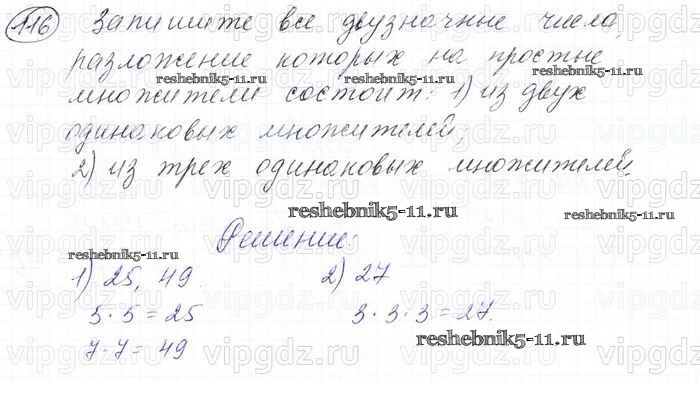 116 Запишите все двузначные числа,
разложение которых на простые
reshebnik5-11.ru reshebnik5-11.ru reshebnik5-11.ru
множители состоит: 1) из двух
одинаковых множителей;
2) из трех одинаковых множителей.
reshebnik5-11.ru reshebnik5-11.ru
Решение:
reshebnik5-11.ru
1) 25, 49. 2) 27
5·5=25 3·3·3=27.
reshebnik5-11.ru
7·7=49
vipgdz.ru vipgdz.ru vipgdz.ru vipgdz.ru